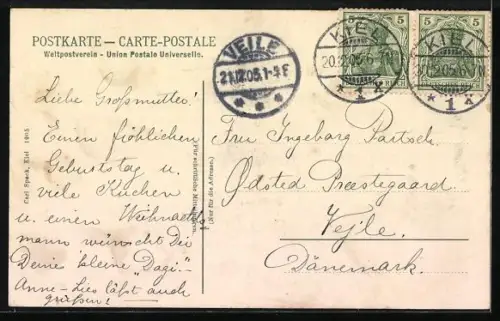 POSTKARTE — CARTE-POSTALE
Weltpostverein - Union Postale Universelle.
VEJLE
21.12.05.1-4E
5
5
KIEL
20.12.05.6
* 1 *
KIEL
05.6
* 1 *
Liebe Großmutter!
Einen fröhlichen
Geburtstag u.
viele Kuchen
u. einen Weihnachts
mann wünscht Dir
Deine kleine "Dagi".
Anne-Lies läßt auch
grüßen!
Frau Ingeborg Partsch.
Ødsted Præstegaard
Vejle.
Dänemark.
Carl Speck, Kiel
(Nur für die Adresse.)